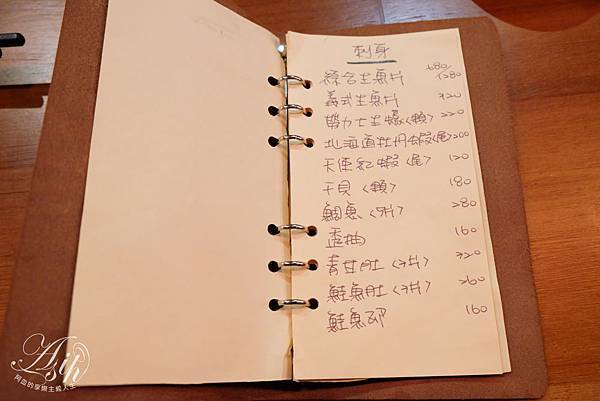 刺身
綜合生魚片 680/1280
義式生魚片 320
勞力士生蠔<顆> 220
北海道牡丹蝦<尾> 200
天使紅蝦<尾> 120
干貝<顆> 180
鯛魚<3片> 280
歪抽 160
青甘肚<3片> 320
鮭魚肚<3片> 260
鮭魚卵 160
Asih
阿血的享樂主義人生